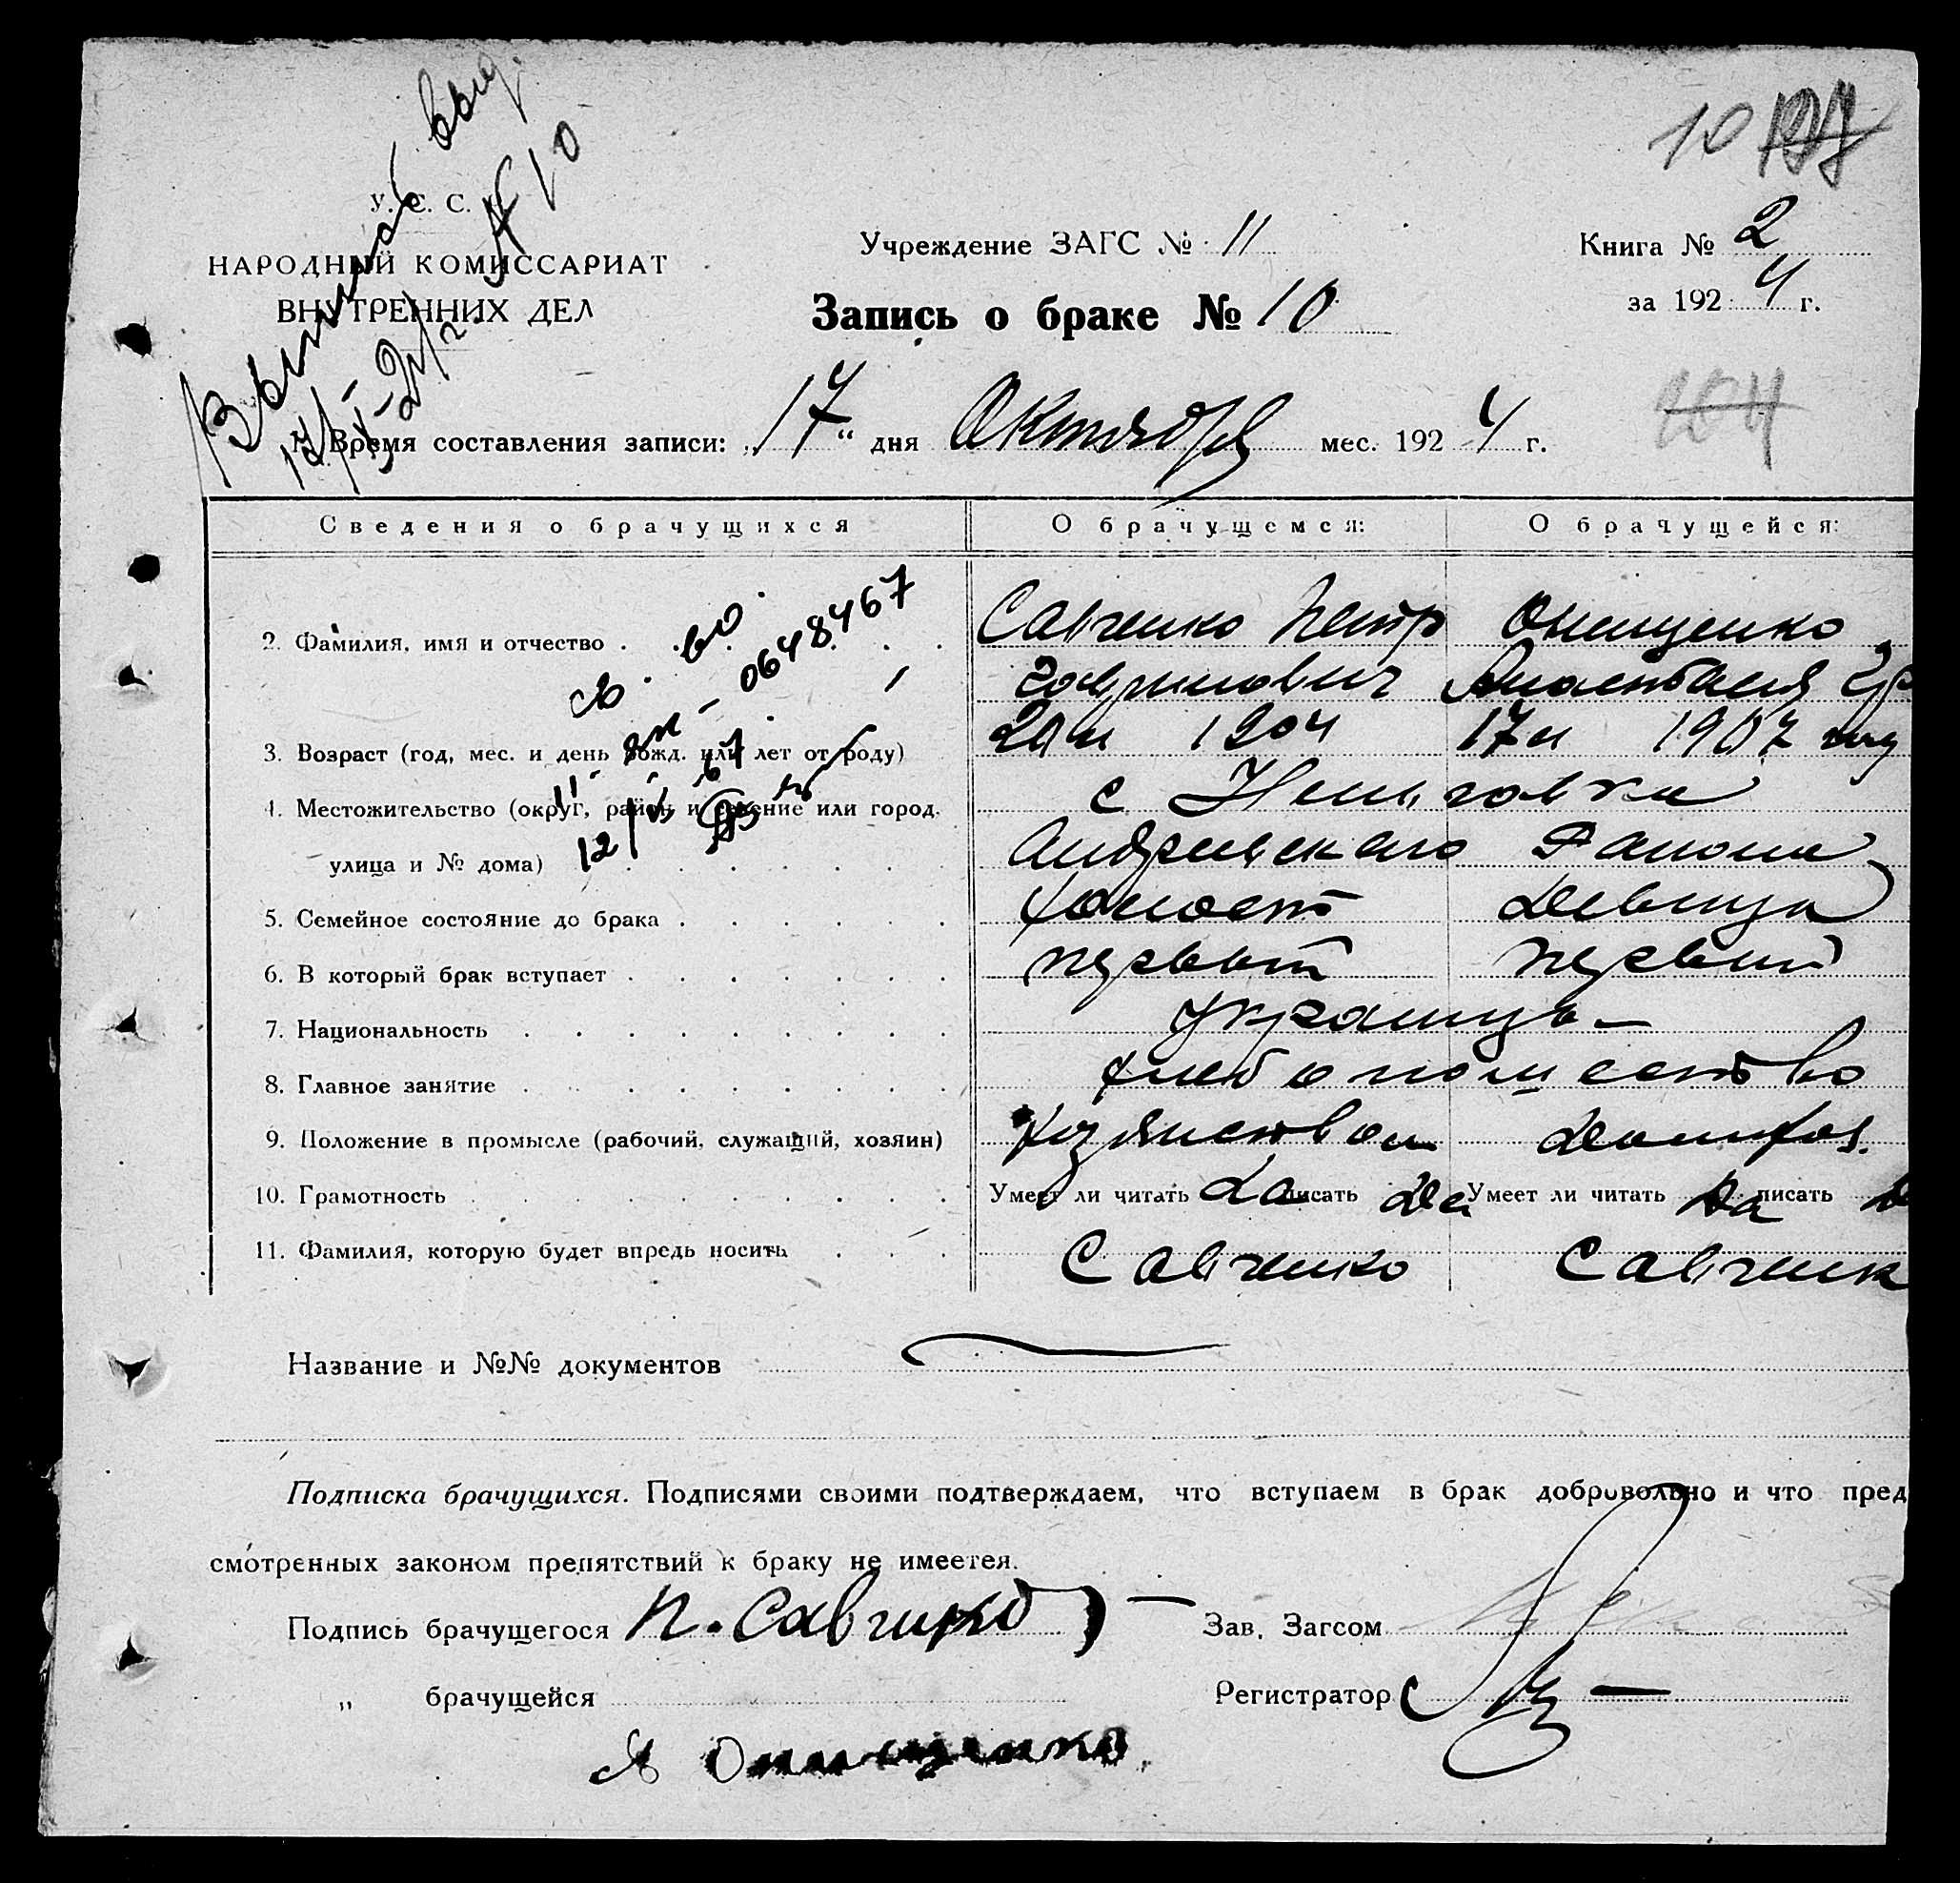 10 197
У. С. С. Р.
Выписка выд.
17/X-24 г. № 10
НАРОДНЫЙ КОМИССАРИАТ
ВНУТРЕННИХ ДЕЛ
Учреждение ЗАГС № 11
Книга № 2
за 1924 г.
Запись о браке № 10
204
1. Время составления записи: „17“ дня Октября мес. 1924 г.
Сведения о брачущихся О брачущемся: О брачущейся:
2. Фамилия, имя и отчество Савченко Петр Онищенко
Анастасия
св-во
0648467
3. Возраст (год, мес. и день рожд. или лет от роду) 20 л 1904 17 л 1907 году
4. Местожительство (округ, район и селение или город. с
улица и № дома) Андреевского Района
12/
5. Семейное состояние до брака холост девица
6. В который брак вступает первый первый
7. Национальность украинцы
8. Главное занятие хлебопашество
9. Положение в промысле (рабочий, служащий, хозяин) домихоз.
10. Грамотность Умеет ли читать Да писать Да Умеет ли читать Да писать
11. Фамилия, которую будет впредь носить Савченко Савченк
Название и №№ документов
Подписка брачущихся. Подписями своими подтверждаем, что вступаем в брак добровольно и что пред
смотренных законом препятствий к браку не имеется.
Подпись брачущегося П. Савченко Зав. Загсом
„ брачущейся Регистратор
А Онищенко